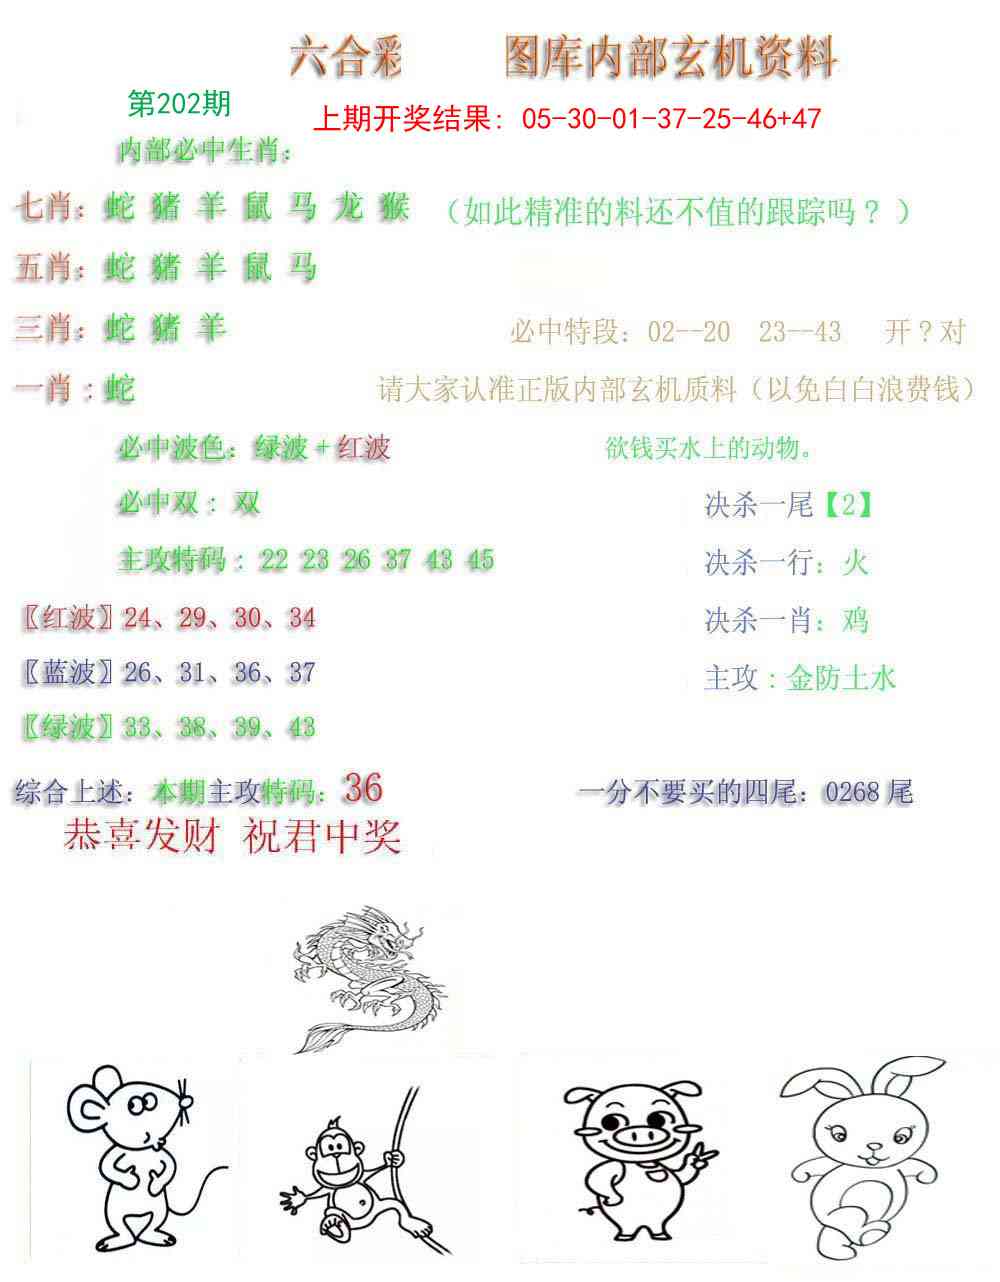 六合彩 图库内部玄机资料
第202期
上期开奖结果: 05-30-01-37-25-46+47
内部必中生肖:
七肖: 蛇 猪 羊 鼠 马 龙 猴 （如此精准的料还不值的跟踪吗？）
五肖: 蛇 猪 羊 鼠 马
三肖: 蛇 猪 羊 必中特段: 02--20 23--43 开？对
一肖: 蛇 请大家认准正版内部玄机质料（以免白白浪费钱）
必中波色: 绿波+红波 欲钱买水上的动物。
必中双: 双 决杀一尾【2】
主攻特码: 22 23 26 37 43 45 决杀一行: 火
〖红波〗24、29、30、34 决杀一肖: 鸡
〖蓝波〗26、31、36、37 主攻: 金防土水
〖绿波〗33、38、39、43
综合上述: 本期主攻特码: 36 一分不要买的四尾: 0268 尾
恭喜发财 祝君中奖